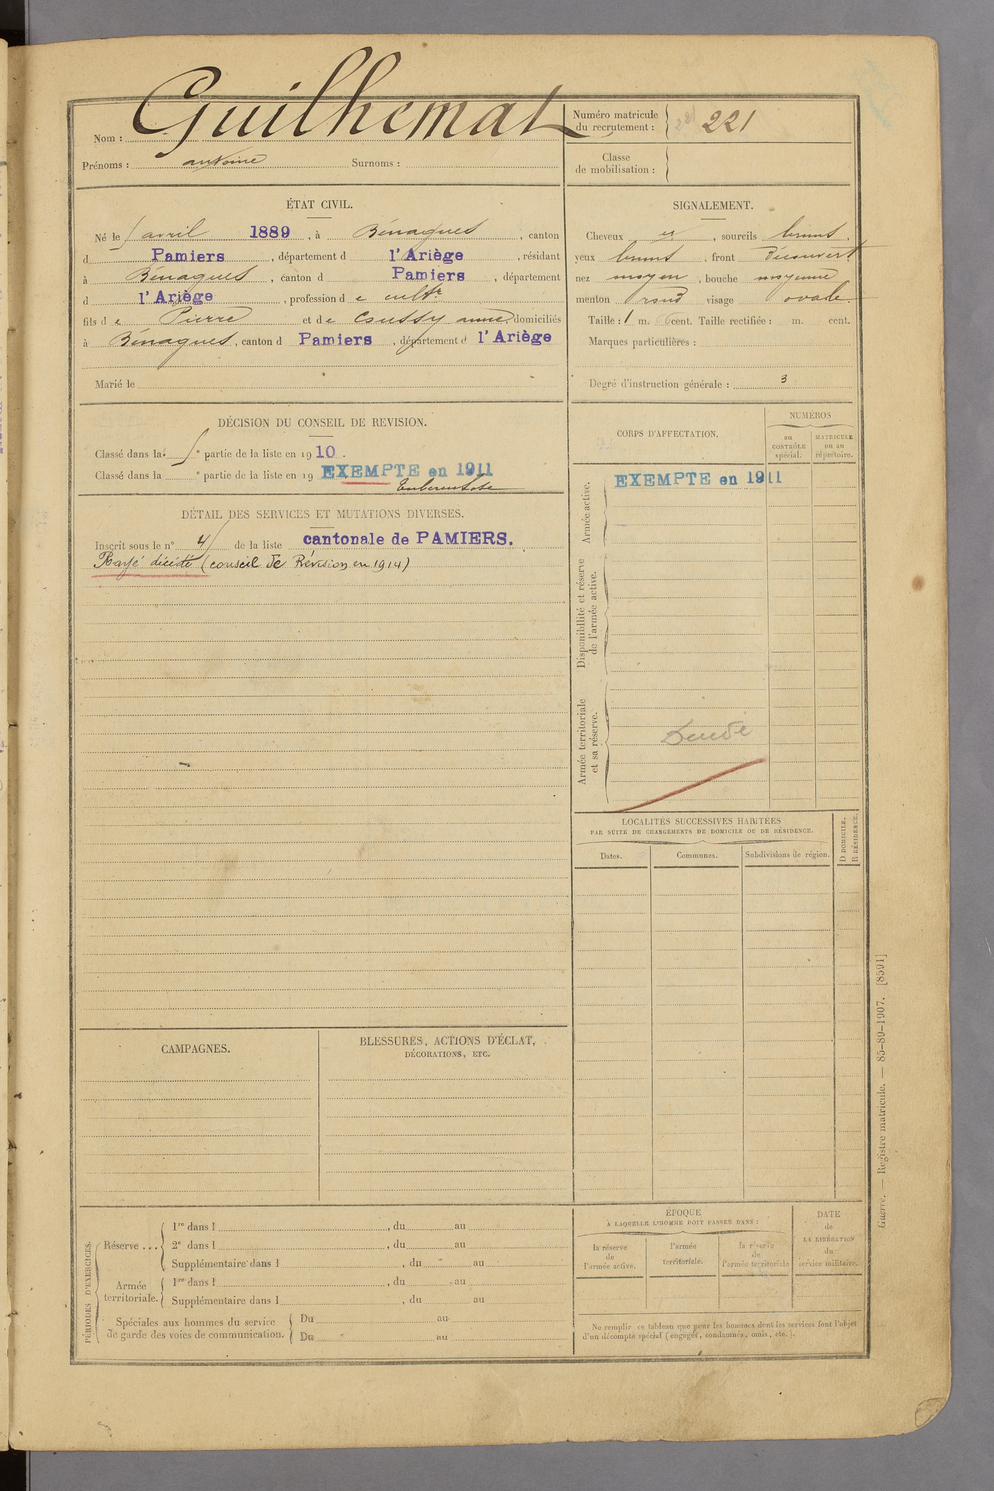 Nom : Guilhemat
Prénoms : antoine Surnoms :
Numéro matricule du recrutement : 221
Classe de mobilisation :
ÉTAT CIVIL.
Né le avril 1889, à Bénagues, canton
d Pamiers, département d l'Ariège, résidant
à Bénagues, canton d Pamiers, département
d l'Ariège, profession d e cultr
fils d e Pierre et de anne domiciliés
à Bénagues, canton d Pamiers, département d l'Ariège
Marié le
SIGNALEMENT.
Cheveux et, sourcils bruns.
yeux bruns, front découvert
nez moyen, bouche moyenne
menton rond visage ovale
Taille : 1 m. cent. Taille rectifiée : m. cent.
Marques particulières :
Degré d'instruction générale : 3
DÉCISION DU CONSEIL DE REVISION.
Classé dans la ° partie de la liste en 1910.
Classé dans la ° partie de la liste en 19 EXEMPTÉ en 1911
Tuberculose
DÉTAIL DES SERVICES ET MUTATIONS DIVERSES.
Inscrit sous le n° 4 de la liste cantonale de PAMIERS.
Rayé décédé (conseil de Révision en 1914)
CORPS D'AFFECTATION.
NUMÉROS
au CONTRÔLE spécial.
MATRICULE ou au répertoire.
Armée active.
EXEMPTÉ en 1911
Disponibilité et réserve de l'armée active.
Armée territoriale et sa réserve.
LOCALITÉS SUCCESSIVES HABITÉES
PAR SUITE DE CHANGEMENTS DE DOMICILE OU DE RÉSIDENCE.
Dates. Communes. Subdivisions de région.
D DOMICILE. R RÉSIDENCE.
CAMPAGNES.
BLESSURES, ACTIONS D'ÉCLAT,
DÉCORATIONS, ETC.
PÉRIODES D'EXERCICES.
Réserve ...
1re dans l , du au
2e dans l , du au
Supplémentaire dans l , du au
Armée territoriale.
1re dans l , du au
Supplémentaire dans l , du au
Spéciales aux hommes du service
de garde des voies de communication.
Du au
Du au
ÉPOQUE
À LAQUELLE L'HOMME DOIT PASSER DANS :
la réserve de l'armée active.
l'armée territoriale.
la réserve de l'armée territoriale
DATE de LA LIBÉRATION du service militaire.
Ne remplir ce tableau que pour les hommes dont les services font l'objet
d'un décompte spécial (engagés, condamnés, omis, etc.).
Guerre. — Registre matricule. — 85-89-1907. [8591]